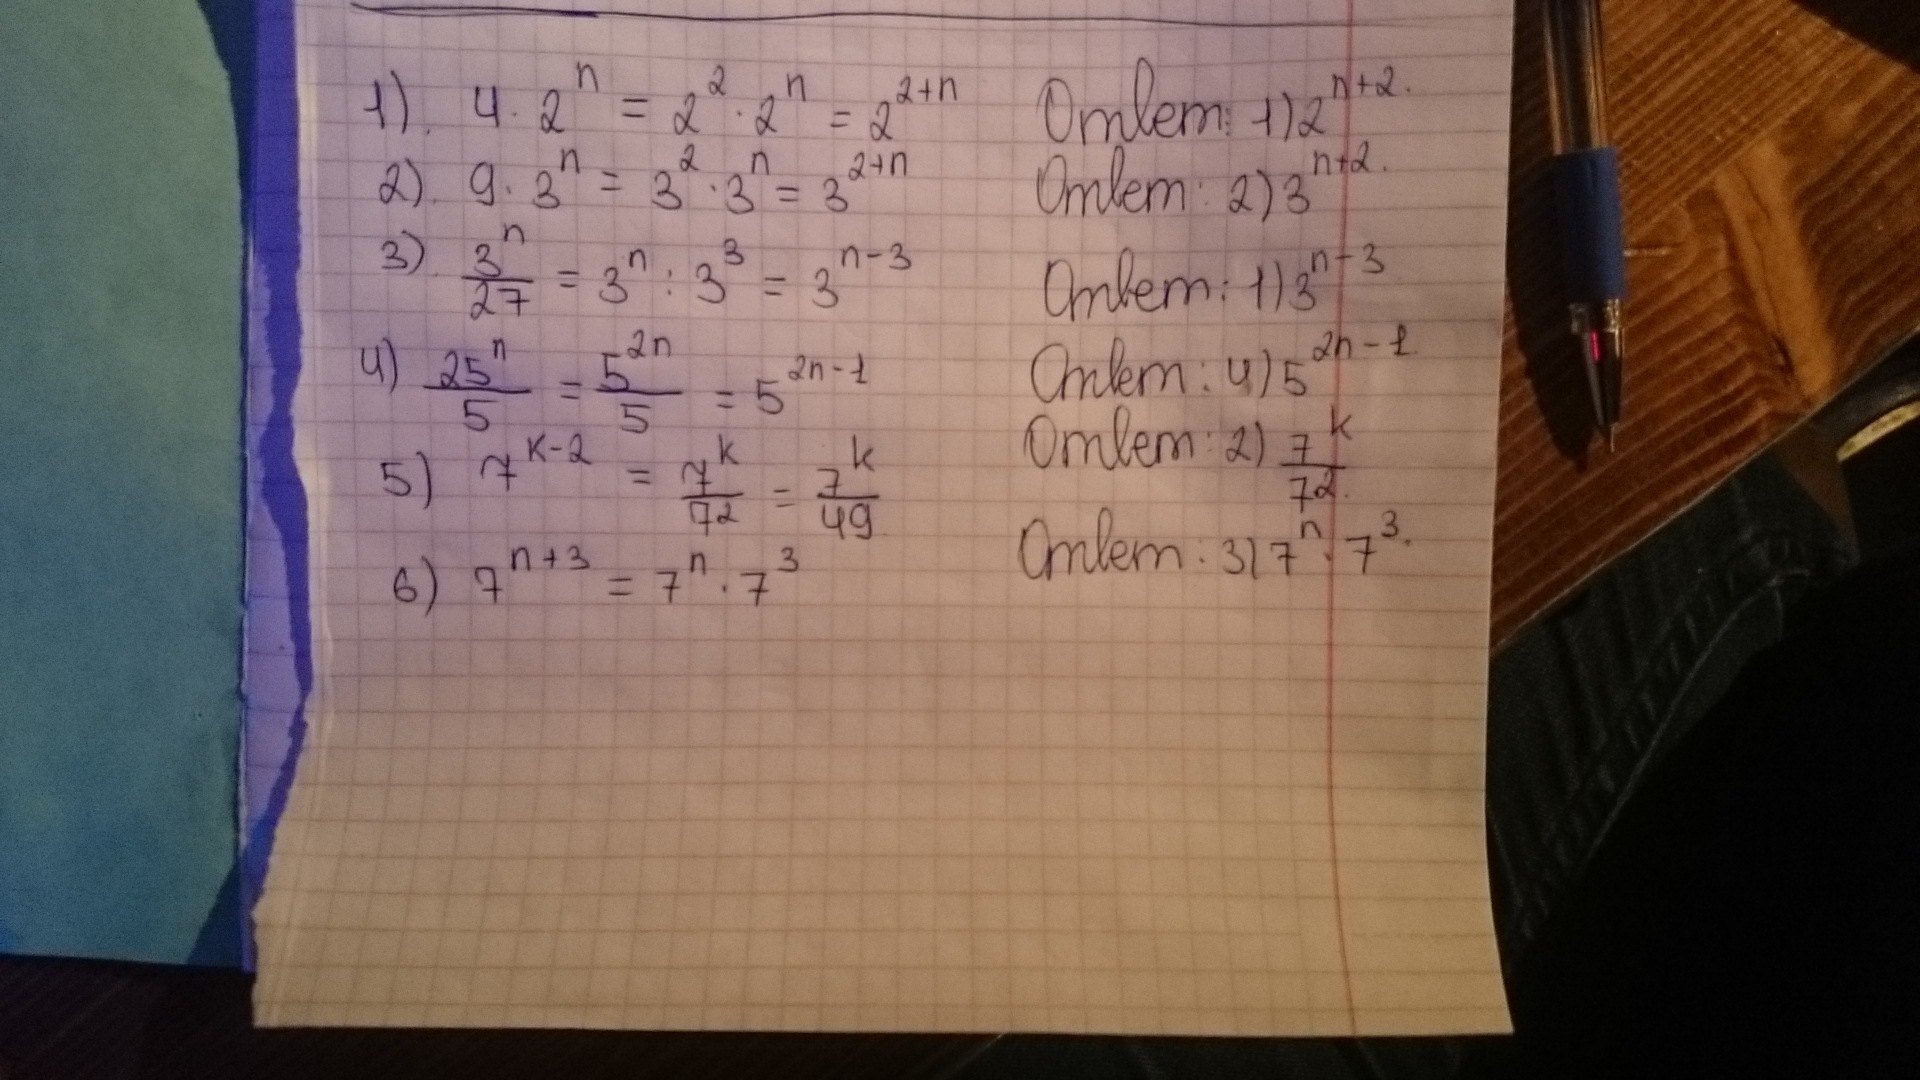 1). 4 · 2^n = 2^2 · 2^n = 2^{2+n} Ответ: 1) 2^{n+2}.
2). 9 · 3^n = 3^2 · 3^n = 3^{2+n} Ответ: 2) 3^{n+2}.
3). 3^n/27 = 3^n : 3^3 = 3^{n-3} Ответ: 1) 3^{n-3}
4) 25^n/5 = 5^{2n}/5 = 5^{2n-1} Ответ: 4) 5^{2n-1}
5) 7^{k-2} = 7^k/7^2 = 7^k/49 Ответ: 2) 7^k/7^2.
6) 7^{n+3} = 7^n · 7^3 Ответ: 3) 7^n · 7^3.